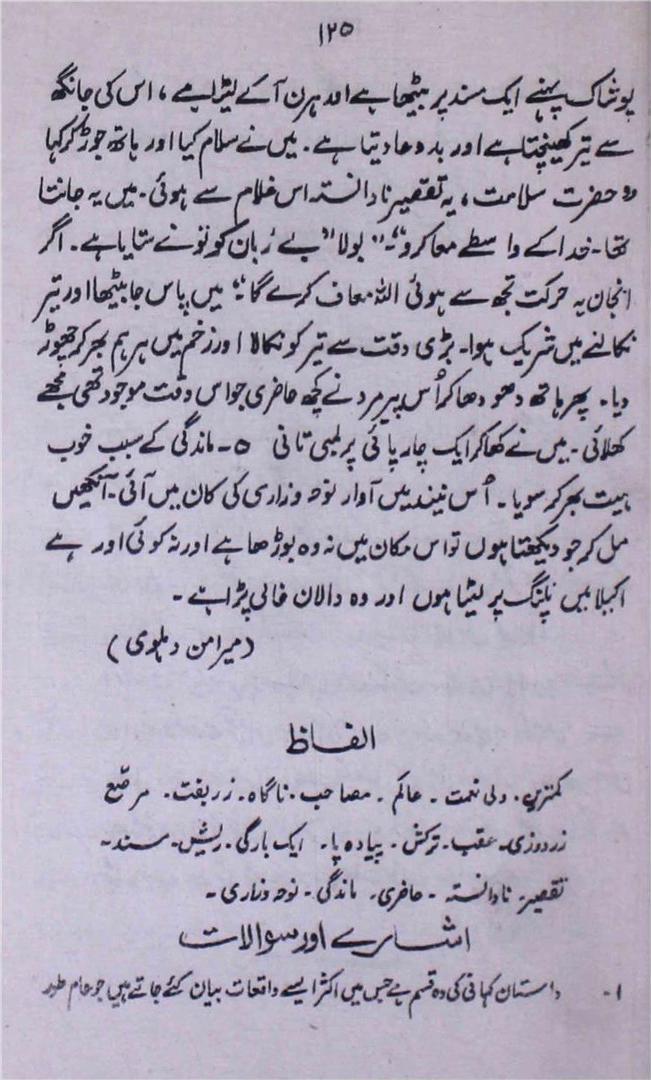 ۱۲۵
پوشاک پہنے ایک مسند پر بیٹھا ہے اور ہرن آگے لیٹا ہے، اس کی جانگھ
سے تیر کھینچتا ہے اور بددعا دیتا ہے۔ میں نے سلام کیا اور ہاتھ جوڑ کر کہا
”حضرت سلامت، یہ تقصیر نادانستہ اس غلام سے ہوئی۔ میں یہ جانتا
تھا۔ خدا کے واسطے معاف کرو“۔ بولا ”بے زبان کو تو نے ستایا ہے۔ اگر
انجان یہ حرکت تجھ سے ہوئی اللہ معاف کرے گا“۔ میں پاس جا بیٹھا اور تیر
نکالنے میں شریک ہوا۔ بڑی دقت سے تیر کو نکالا اور زخم میں مرہم بھر کر چھوڑ
دیا۔ پھر ہاتھ دھو دھا کر اُس پیرمرد نے کچھ حاضری جو اس وقت موجود تھی مجھے
کھلائی۔ میں نے کھا کر ایک چارپائی پر لمبی تانی ۵۔ ماندگی کے سبب خوب
پیٹ بھر کر سویا۔ اُس نیند میں آواز نوحہ وزاری کی کان میں آئی۔ آنکھیں
مل کر جو دیکھتا ہوں تو اس مکان میں نہ وہ بوڑھا ہے اور نہ کوئی اور ہے
اکیلا میں پلنگ پر لیٹا ہوں اور وہ دالان خالی پڑا ہے۔
(میر امن دہلوی)
الفاظ
کمترین۔ ولی نعمت۔ عالم۔ مصاحب۔ ناگاہ۔ زربفت۔ مرصّع
زردوزی۔ عقب۔ ترکش۔ پیادہ پا۔ ایک بارگی۔ ریش۔ مسند۔
تقصیر۔ نادانستہ۔ حاضری۔ ماندگی۔ نوحہ وزاری۔
اشارے اور سوالات
۱۔ داستان کہانی کی وہ قسم ہے جس میں اکثر ایسے واقعات بیان کئے جاتے ہیں جو عام طور